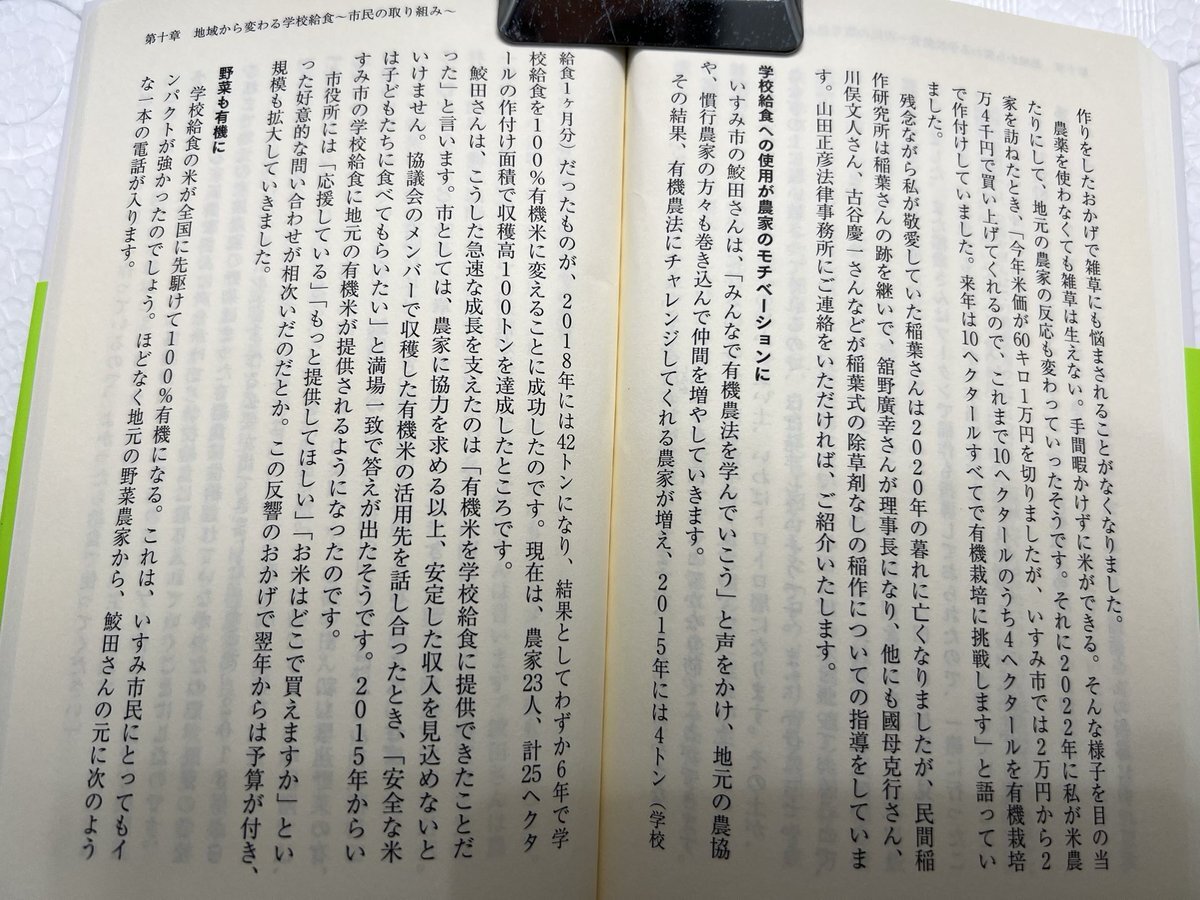 作りをしたおかげで雑草にも悩まされることがなくなりました。
農薬を使わなくても雑草は生えない。手間暇かけずに米ができる。そんな様子を目の当
たりにして、地元の農家の反応も変わっていったそうです。それに2022年に私が米農
家を訪ねたとき、「今年米価が60キロ1万円を切りましたが、いすみ市では2万円から2
万4千円で買い上げてくれるので、これまで10ヘクタールのうち4ヘクタールを有機栽培
で作付けしていました。来年は10ヘクタールすべてで有機栽培に挑戦します」と語ってい
ました。
残念ながら私が敬愛していた稲葉さんは2020年の暮れに亡くなりましたが、民間稲
作研究所は稲葉さんの跡を継いで、舘野廣幸さんが理事長になり、他にも國母克行さん、
川俣文人さん、古谷慶一さんなどが稲葉式の除草剤なしの稲作についての指導をしていま
す。山田正彦法律事務所にご連絡をいただければ、ご紹介いたします。
学校給食への使用が農家のモチベーションに
いすみ市の鮫田さんは、「みんなで有機農法を学んでいこう」と声をかけ、地元の農協
や、慣行農家の方々も巻き込んで仲間を増やしていきます。
その結果、有機農法にチャレンジしてくれる農家が増え、2015年には4トン(学校
第十章 地域から変わる学校給食~市民の取り組み~
給食1ヶ月分)だったものが、2018年には42トンになり、結果としてわずか6年で学
校給食を100%有機米に変えることに成功したのです。現在は、農家23人、計25ヘクタ
ールの作付け面積で収穫高100トンを達成したところです。
鮫田さんは、こうした急速な成長を支えたのは「有機米を学校給食に提供できたことだ
った」と言います。市としては、農家に協力を求める以上、安定した収入を見込めないと
いけません。協議会のメンバーで収穫した有機米の活用先を話し合ったとき、「安全な米
は子どもたちに食べてもらいたい」と満場一致で答えが出たそうです。2015年からい
すみ市の学校給食に地元の有機米が提供されるようになったのです。
市役所には「応援している」「もっと提供してほしい」「お米はどこで買えますか」とい
った好意的な問い合わせが相次いだのだとか。この反響のおかげで翌年からは予算が付き、
規模も拡大していきました。
野菜も有機に
学校給食の米が全国に先駆けて100%有機になる。これは、いすみ市民にとってもイ
ンパクトが強かったのでしょう。ほどなく地元の野菜農家から、鮫田さんの元に次のよう
な一本の電話が入ります。